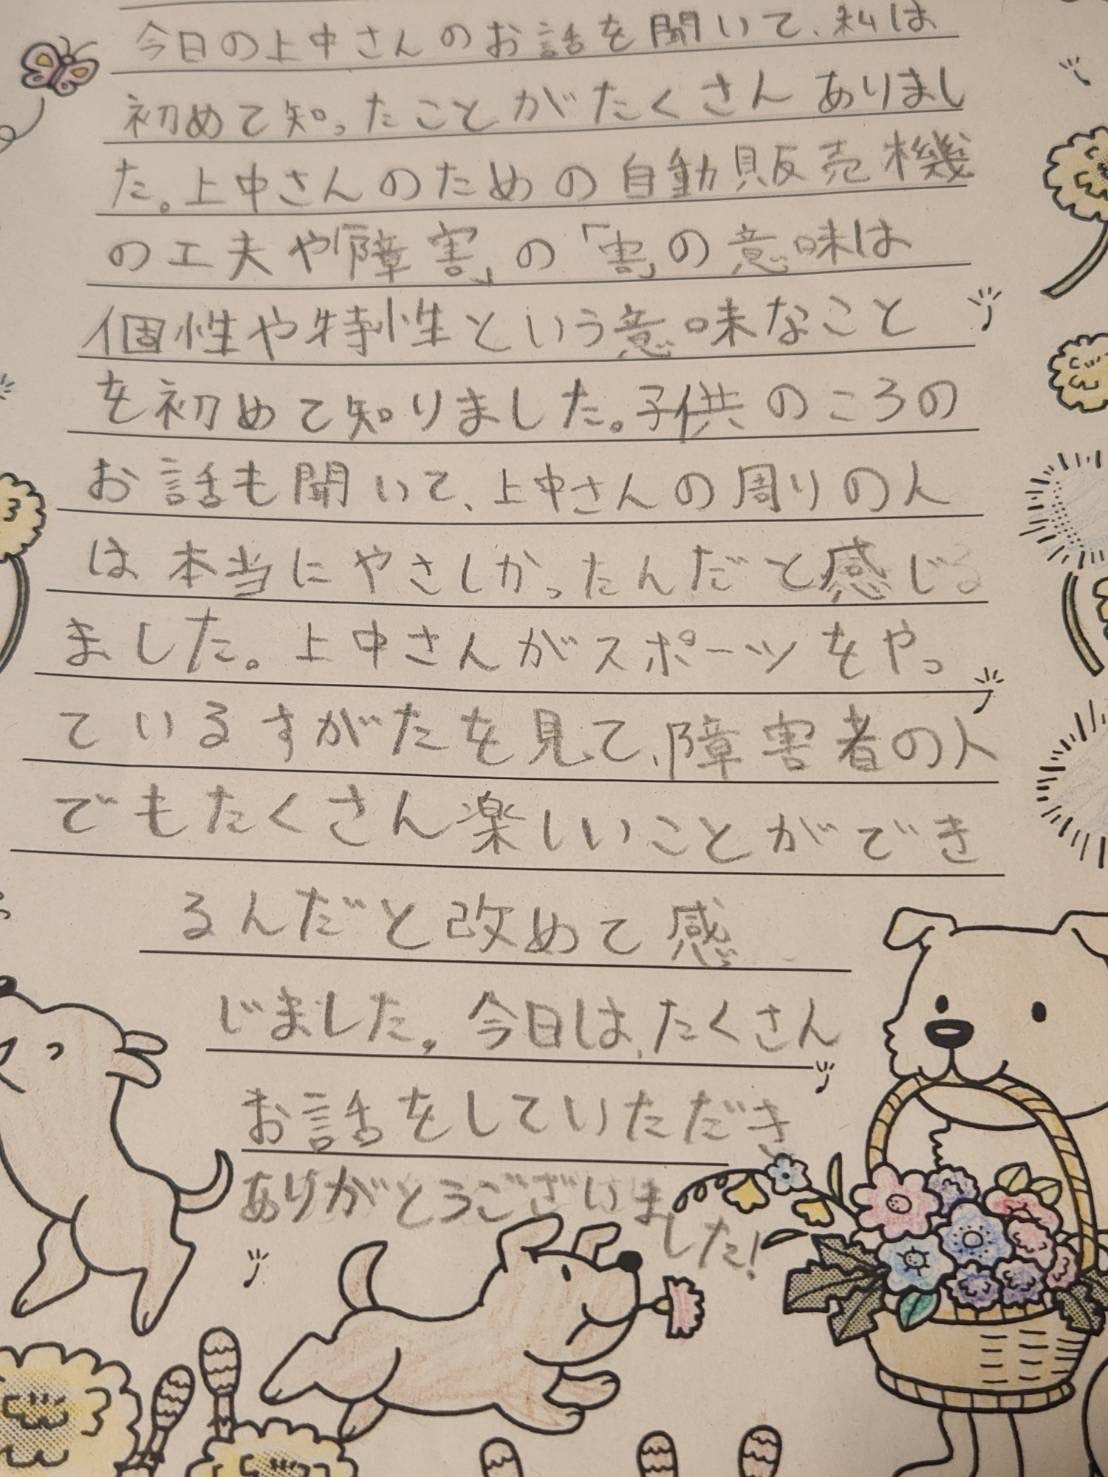 今日の上中さんのお話を聞いて、私は
初めて知ったことがたくさんありまし
た。上中さんのための自動販売機
の工夫や「障害」の「害」の意味は
個性や特性という意味なこと
を初めて知りました。子供のころの
お話も聞いて、上中さんの周りの人
は本当にやさしかったんだと感じ
ました。上中さんがスポーツをやっ
ているすがたを見て、障害者の人
でもたくさん楽しいことができ
るんだと改めて感
じました。今日は、たくさん
お話をしていただき
ありがとうございました!